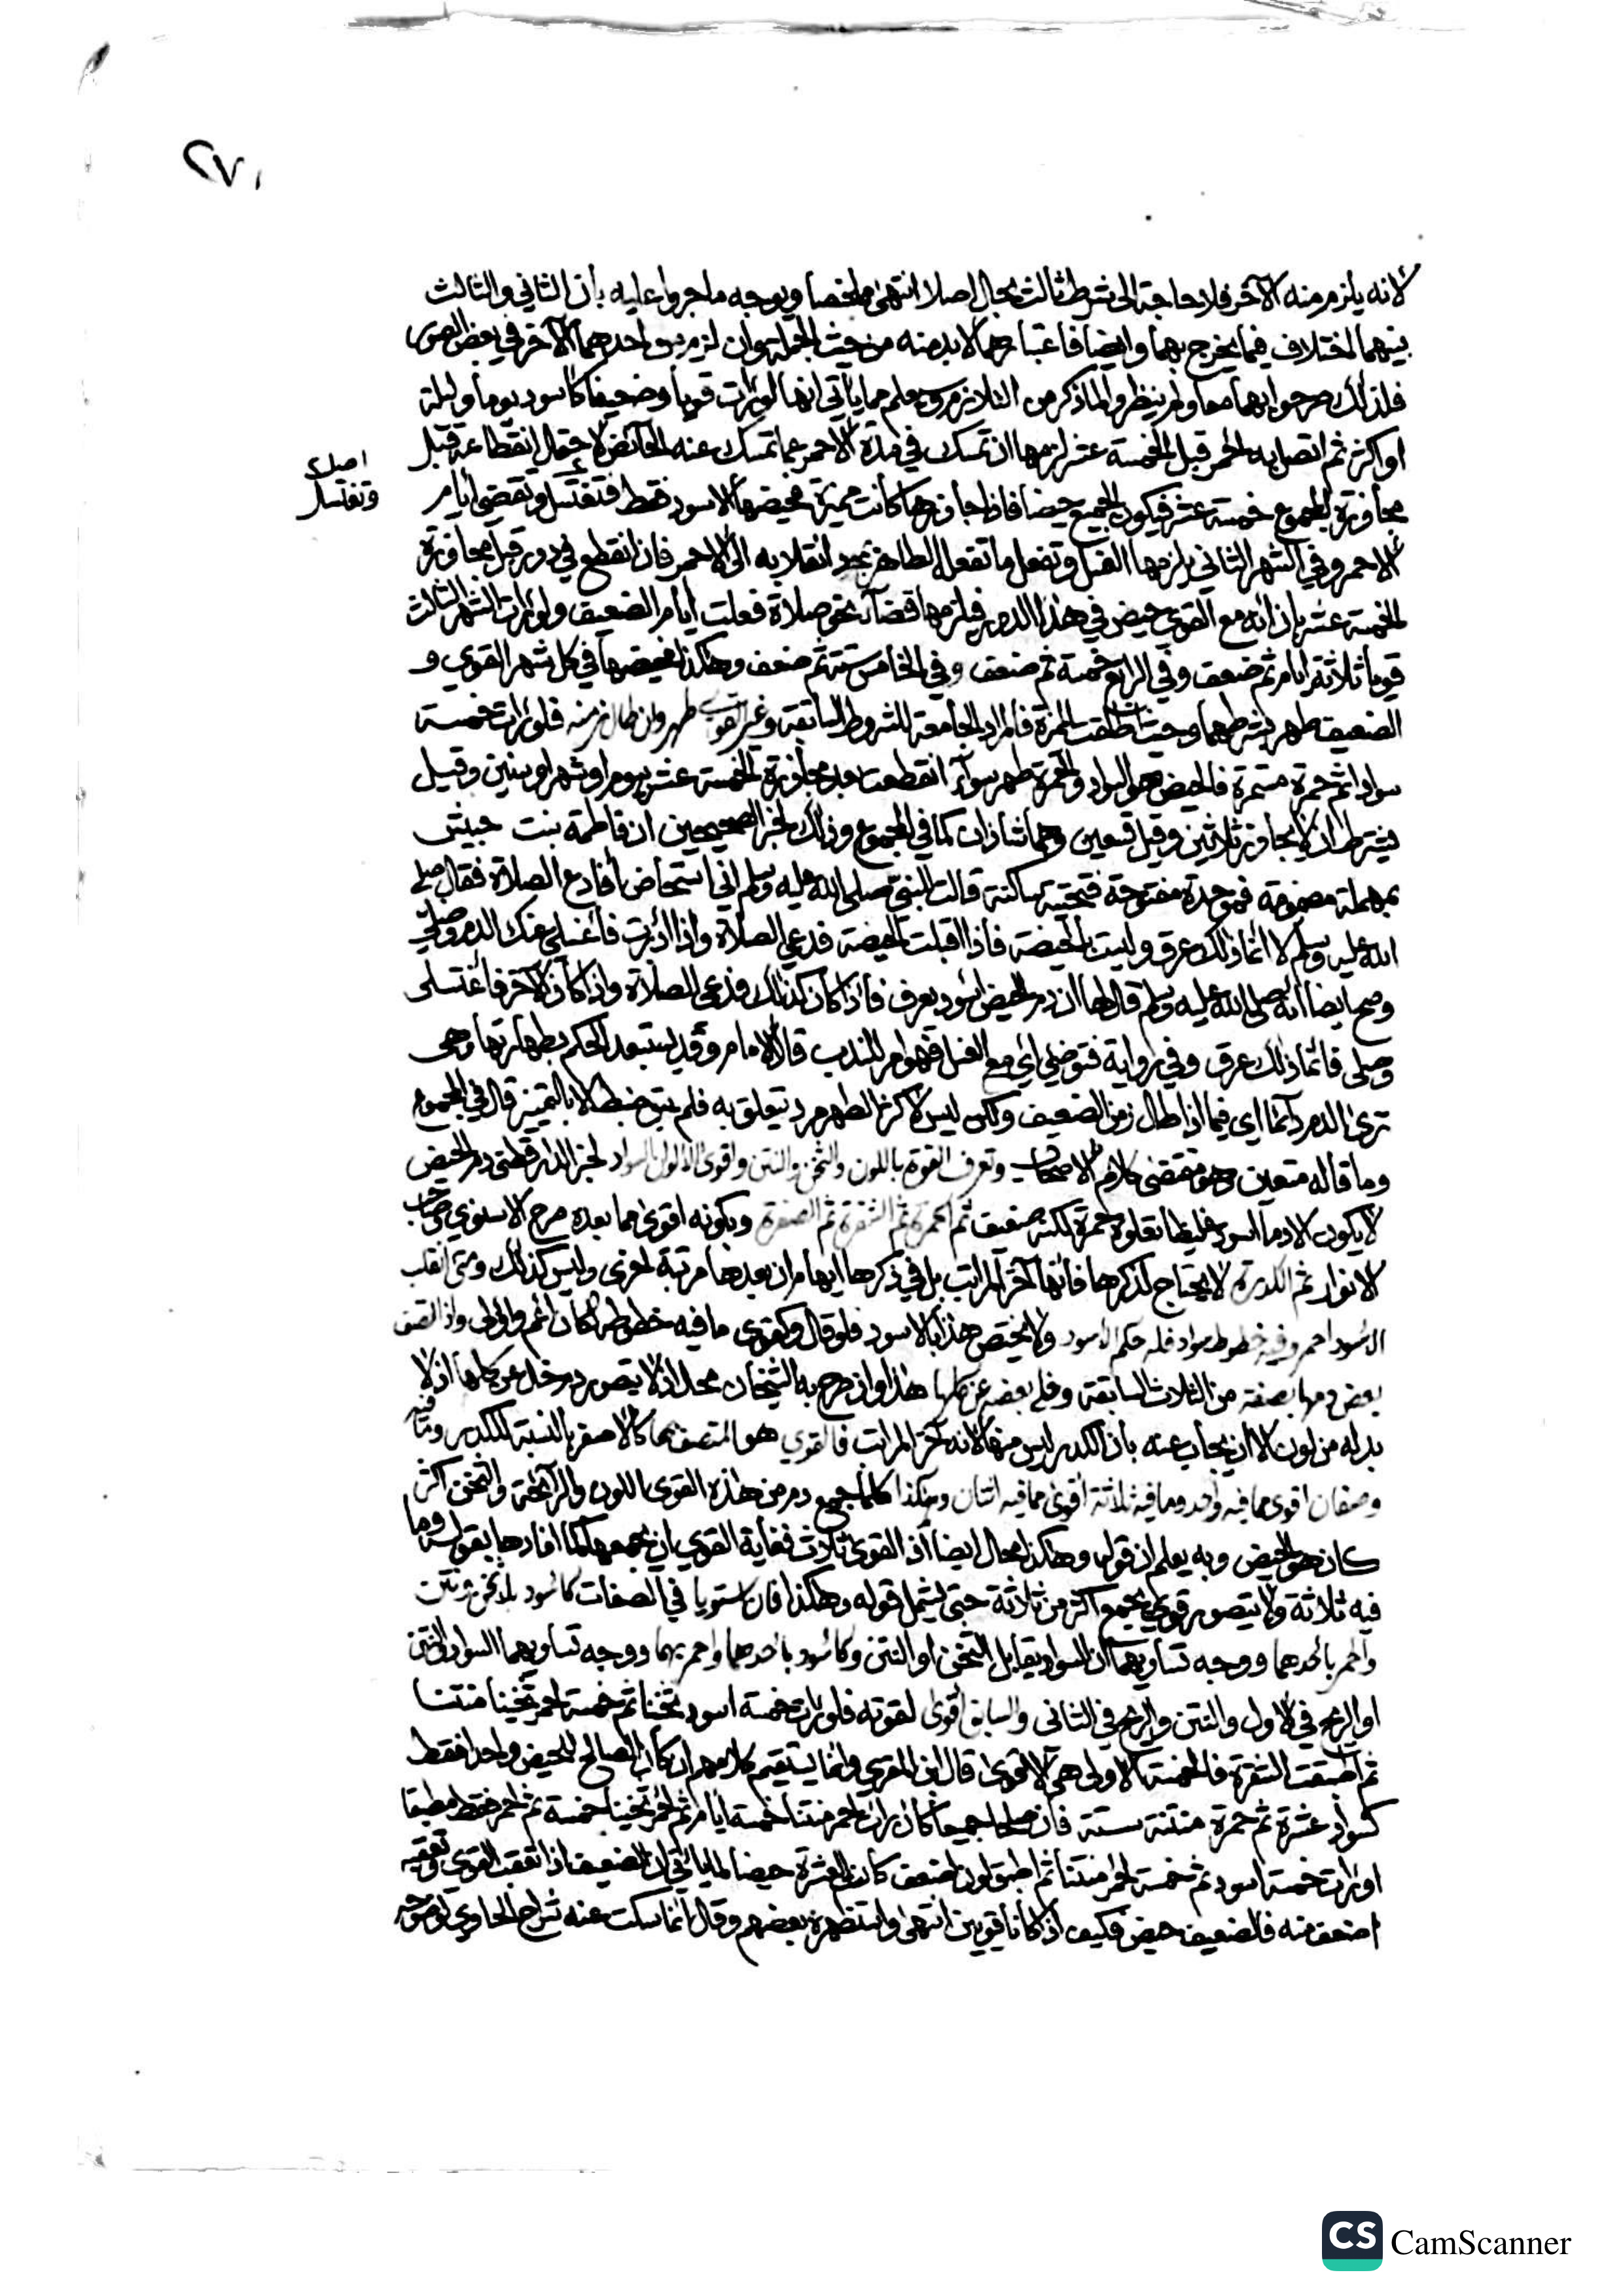 ٢٧٠
لانه يلزم منه الآخر فلا حاجة الى شرط ثالث بحال اصلا انتهى ملخصا ويوجه ما جروا عليه بأن الثاني والثالث
بينهما اختلاف فيما يخرج بهما وايضا فاعتبارهما لا بد منه من حيث الجملة وان لزم من احدهما الآخر في بعض الصور
فلذلك صرحوا بهما معا ولم ينظروا لما ذكر من التلازم ويعلم مما يأتي انها لو رأت قويا وضعيفا كأسود يوما وليلة
او اكثر ثم اتصل به احمر قبل الخمسة عشر لزمها ان تمسك في مدة الاحمر عما تمسك عنه الحائض لاحتمال انقطاعه قبل
مجاوزة المجموع خمسة عشر فيكون الجميع حيضا فاذا جاوزها كانت مميزة فحيضها الاسود فقط فتغتسل وتقضي أيام
اصل وتغتسل
الاحمر وفي الشهر الثاني يلزمها الغسل وتفعل ما تفعله الطاهر بمجرد انقلابه الى الاحمر فان انقطع في دور قبل مجاوزة
الخمسة عشر بان انه مع القوي حيض في هذا الدور فيلزمها قضاء نحو صلاة فعلت أيام الضعيف ولو رأت الشهر الثالث
قويا ثلاثة ايام ثم ضعف وفي الرابع خمسة ثم ضعف وفي الخامس ستة ثم ضعف وهكذا فحيضها في كل شهر القوي و
الضعيف طهر بشرطهما وحيث اطلقت المميزة فالمراد الجامعة للشروط السابقة وغير القوي طهر وان طال زمنه فلو رأت خمسة
سوادا ثم حمرة مستمرة فالحيض هو السواد والحمرة طهر سواء انقطعت بعد مجاوزة الخمسة عشر بيوم او شهر او سنين وقيل
يشترط ان لا يجاوز ثلاثين وقيل تسعين وهما شاذان كما في المجموع وذلك لخبر الصحيحين ان فاطمة بنت حبيش
بمهملة مضمومة فموحدة مفتوحة فتحتية ساكنة قالت للنبي صلى الله عليه وسلم اني استحاض أفأدع الصلاة فقال صلى
الله عليه وسلم لا انما ذلك عرق وليست بالحيضة فاذا اقبلت الحيضة فدعي الصلاة واذا أدبرت فاغسلي عنك الدم وصلي
وصح ايضا أنه صلى الله عليه وسلم قال لها ان دم الحيض اسود يعرف فاذا كان كذلك فدعي الصلاة واذا كان الآخر فاغتسلي
وصلي فانما ذلك عرق وفي رواية فتوضئي اي مع الغسل فهو امر للندب قال الامام وقد يستبعد الحكم بطهارتها وهي
ترى الدم دائما اي فيما اذا طال زمن الضعيف ولكن ليس لاكثر الطهر مرد يتعلق به فلم يبق ضبط الا بالتمييز قال في المجموع
وما قاله متعين وهو مقتضى كلام الاصحاب وتعرف القوة باللون والثخن والنتن واقوى الالوان السواد لخبر الدارقطني دم الحيض
لا يكون الا دما اسود غليظا تعلوه حمرة لكنه ضعيف ثم الحمرة ثم الشقرة ثم الصفرة وبكونه اقوى مما بعده صرح الاسنوي وصاحب
الانوار ثم الكدرة لا يحتاج لذكرها فانها آخر المراتب بل في ذكرها ايهام ان بعدها مرتبة اخرى وليس كذلك ومتى انقلب
الاسود احمر وفيه خطوط سواد فله حكم الاسود ولا يختص هذا بالاسود فلو قال وكقوي ما فيه خطوطه كان اعم واولى واذا اتصف
بعض دمها بصفة من الثلاث السابقة وخلي بعضه عن كلها هذا وان صرح به الشيخان محل اذ لا يتصور دم خلي عن كلها اذ لا
بد له من لون الا ان يجاب عنه بان الكدر ليس منها لانه آخر المراتب فالقوي هو المتصف بها كالاصفر بالنسبة للكدر وما فيه
وصفان اقوى مما فيه واحد وما فيه ثلاثة أقوى مما فيه اثنان وهكذا كلما جمع دم من هذه القوى اللون والرائحة والثخن اكثر
كان هو الحيض وبه يعلم ان قوله وهكذا محال ايضا اذ القوى ثلاث فغاية القوي ان يجمعها كما افادها بقوله وما
فيه ثلاثة ولا يتصور قوي يجمع اكثر من ثلاثة حتى يشمل قوله وهكذا فان استويا في الصفات كأسود بلا ثخن ونتن
واحمر بأحدهما ووجه تساويهما ان السواد يقابل الثخن او النتن وكأسود باحدهما واحمر بهما ووجه تساويهما السواد والثخن
او الريح في الاول والنتن والريح في الثاني والسابق أقوى لقوته فلو رأت خمسة اسود ثخنا ثم خمسة احمر ثخينا منتنا
ثم اطبقت الشقرة فالخمسة الاولى هي الاقوى قال ابن المقري وانما يستقيم كلامهم ان كان الصالح للحيض واحدا فقط
كسواد عشرة ثم حمرة منتنة ستة فان صلحا جميعا كان رأت احمر منتنا خمسة ايام ثم احمر ثخينا خمسة ثم احمر فقط مطبقا
او رأت خمسة اسود ثم خمسة احمر منتنا ثم اطبق لون اضعف كان العشرة حيضا لما يأتي ان الضعيف اذا تعقب القوي وتعقبه
اضعف منه فالضعيف حيض فكيف اذا كانا قويين انتهى واستظهره بعضهم وقال انما سكت عنه شراح الحاوي لوضوحه
CS CamScanner